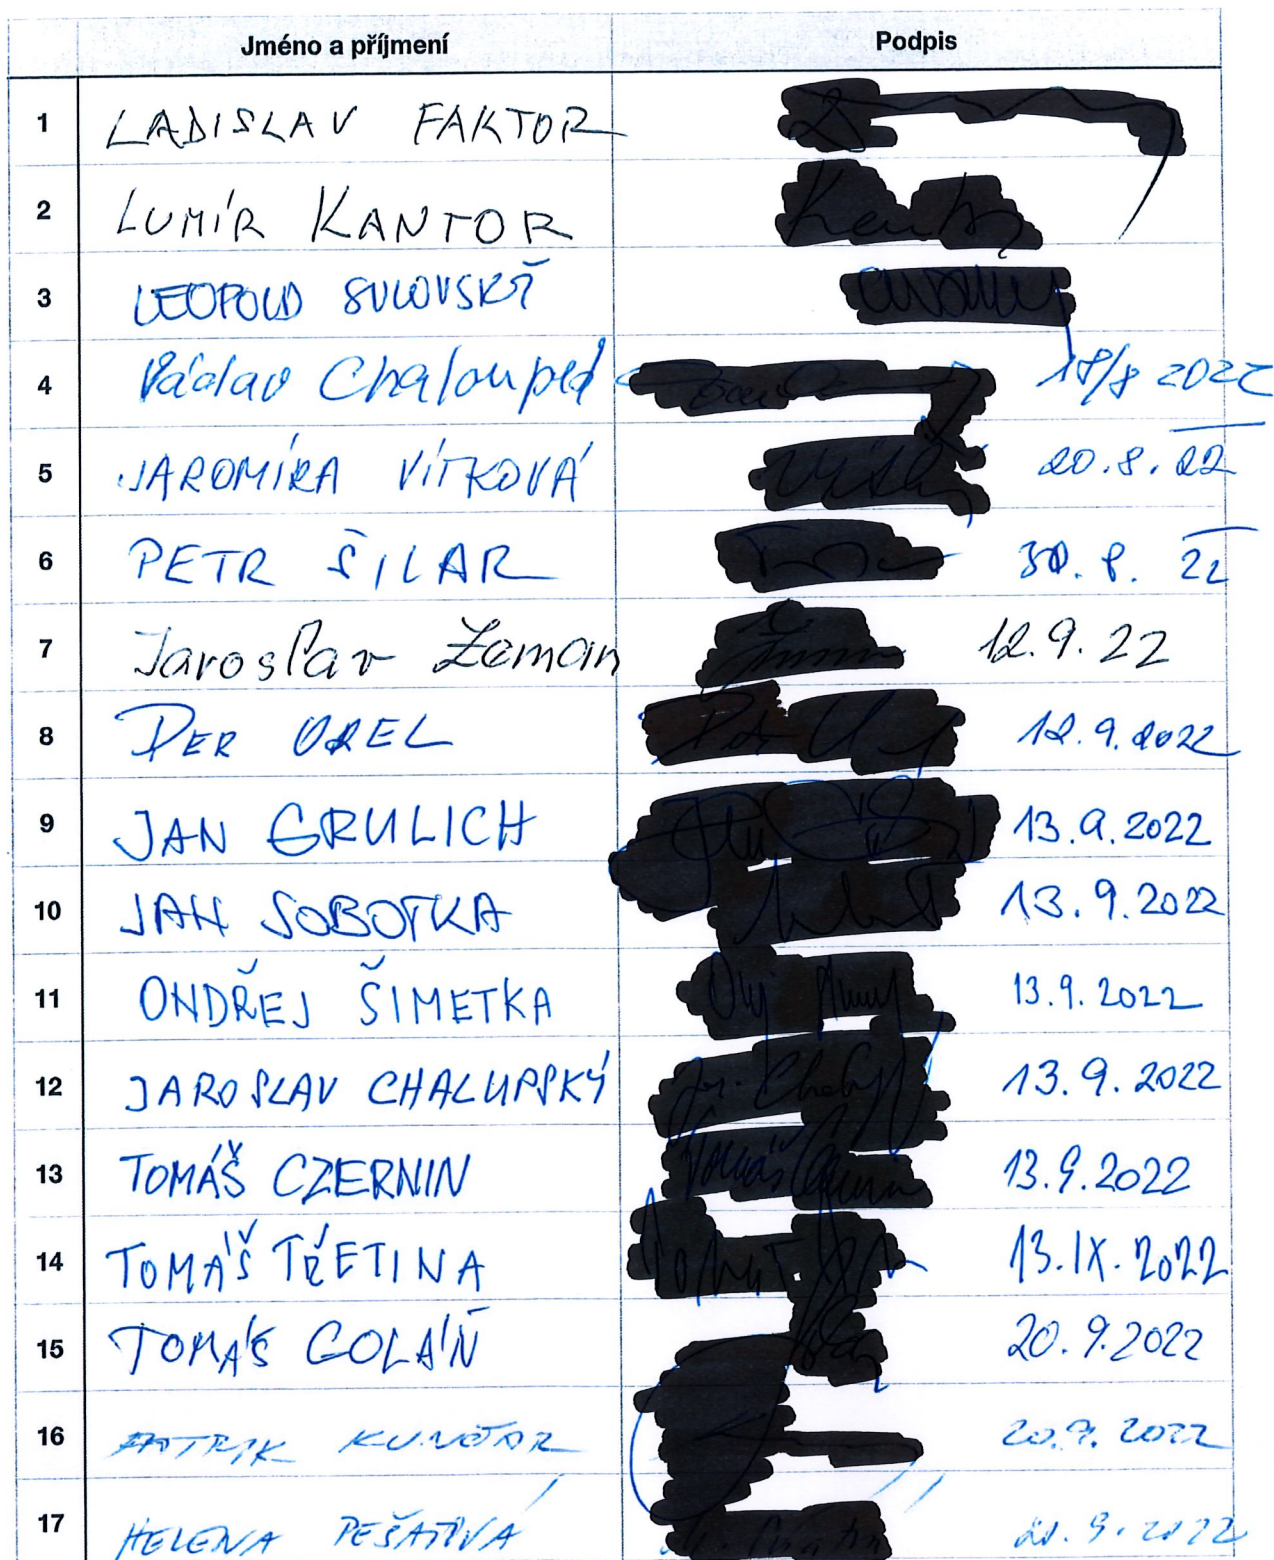 Jméno a příjmení Podpis
1 LADISLAV FAKTOR
2 LUMÍR KANTOR
3 LEOPOLD SULOVSKÝ
4 Václav Chaloupek 18/8 2022
5 JAROMÍRA VÍTKOVÁ 20.8.22
6 PETR ŠILAR 30.8. 22
7 Jaroslav Zeman 12.9.22
8 PETR OREL 12.9.2022
9 JAN GRULICH 13.9.2022
10 JAN SOBOTKA 13.9.2022
11 ONDŘEJ ŠIMETKA 13.9.2022
12 JAROSLAV CHALUPSKÝ 13.9.2022
13 TOMÁŠ CZERNIN 13.9.2022
14 TOMÁŠ TŘETINA 13.IX.2022
15 TOMÁŠ GOLÁŇ 20.9.2022
16 PATRIK KUNČAR 20.9.2022
17 HELENA PEŠATOVÁ 20.9.2022